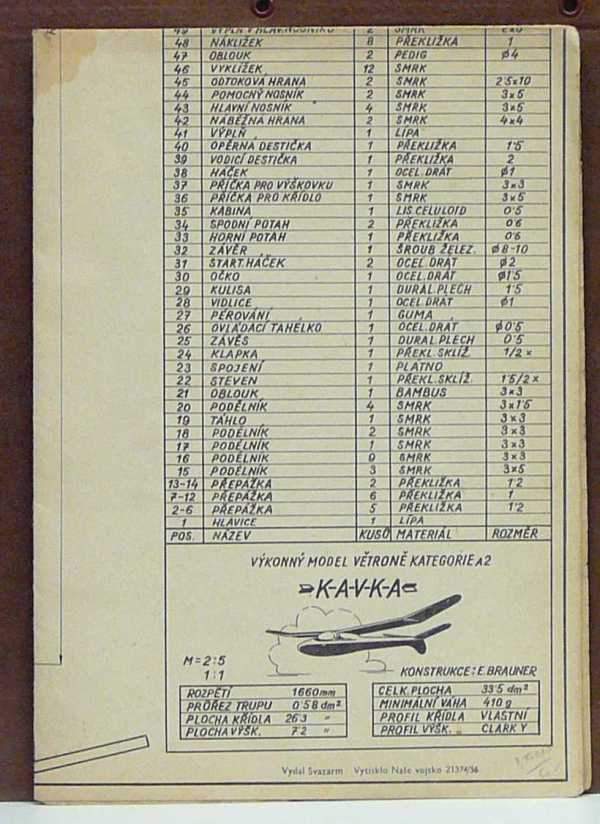 49 VÝPLŇ V HLAV. NOSNÍKU 2 SMRK
48 NÁKLIŽEK 8 PŘEKLIŽKA 1
47 OBLOUK 2 PEDIG ø4
46 VÝKLIŽEK 12 SMRK
45 ODTOKOVÁ HRANA 2 SMRK 2'5x10
44 POMOCNÝ NOSNÍK 2 SMRK 3x5
43 HLAVNÍ NOSNÍK 4 SMRK 3x5
42 NÁBĚŽNÁ HRANA 2 SMRK 4x4
41 VÝPLŇ 1 LÍPA
40 OPĚRNÁ DESTIČKA 1 PŘEKLIŽKA 1'5
39 VODICÍ DESTIČKA 1 PŘEKLIŽKA 2
38 HÁČEK 1 OCEL. DRÁT ø1
37 PŘÍČKA PRO VÝŠKOVKU 1 SMRK 3x3
36 PŘÍČKA PRO KŘÍDLO 1 SMRK 3x5
35 KABINA 1 LIS. CELULOID 0'5
34 SPODNÍ POTAH 2 PŘEKLIŽKA 0'6
33 HORNÍ POTAH 1 PŘEKLIŽKA 0'6
32 ZÁVĚR 1 ŠROUB ŽELEZ. ø8-10
31 START. HÁČEK 2 OCEL. DRÁT ø2
30 OČKO 1 OCEL. DRÁT ø1'5
29 KULISA 1 DURAL. PLECH 1'5
28 VIDLICE 1 OCEL. DRÁT ø1
27 PÉROVÁNÍ 1 GUMA
26 OVLÁDACÍ TÁHÉLKO 1 OCEL. DRÁT ø0'5
25 ZÁVĚS 1 DURAL. PLECH 0'5
24 KLAPKA 1 PŘEKL. SKLÍŽ. 1/2x
23 SPOJENÍ 1 PLÁTNO
22 STEVEN 1 PŘEKL. SKLÍŽ. 1'5/2x
21 OBLOUK 1 BAMBUS 3x3
20 PODÉLNÍK 4 SMRK 3x1'5
19 TÁHLO 1 SMRK 3x3
18 PODÉLNÍK 2 SMRK 3x3
17 PODÉLNÍK 1 SMRK 3x3
16 PODÉLNÍK SMRK 3x3
15 PODÉLNÍK 3 SMRK 3x5
13-14 PŘEPÁŽKA 2 PŘEKLIŽKA 1'2
7-12 PŘEPÁŽKA 6 PŘEKLIŽKA 1
2-6 PŘEPÁŽKA 5 PŘEKLIŽKA 1'2
1 HLAVICE 1 LÍPA
POS. NÁZEV KUSŮ MATERIÁL ROZMĚR
VÝKONNÝ MODEL VĚTRONĚ KATEGORIE A2
K-A-V-K-A
M=2:5
1:1
KONSTRUKCE: E. BRAUNER
ROZPĚTÍ 1660mm
PRŮŘEZ TRUPU 0'58 dm²
PLOCHA KŘÍDLA 26'3 "
PLOCHA VÝŠK. 7'2 "
CELK. PLOCHA 33'5 dm²
MINIMÁLNÍ VÁHA 410 g
PROFIL KŘÍDLA VLASTNÍ
PROFIL VÝŠK. CLARK Y
Vydal Svazarm Vytisklo Naše vojsko 21374/56